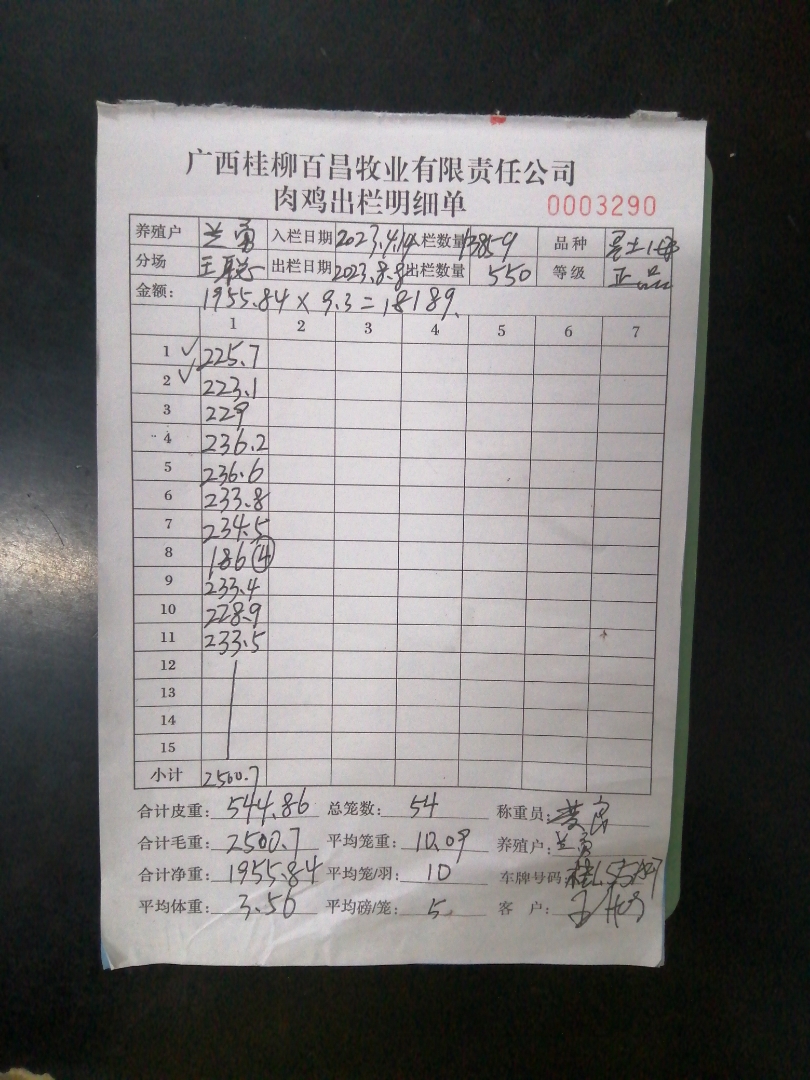 广西桂柳百昌牧业有限责任公司
肉鸡出栏明细单 0003290
养殖户 兰勇 入栏日期 2023.4.14 入栏数量 品种
分场 王聪 出栏日期 2023.8.8 出栏数量 550 等级 正品
金额: 1955.84 × 9.3 = 18189.
1 2 3 4 5 6 7
1 ✓ 225.7
2 ✓ 223.1
3 229
4 236.2
5 236.6
6 233.8
7 234.5
8 186 ④
9 233.4
10 228.9
11 233.5
12
13
14
15
小计 2500.7
合计皮重: 544.86 总笼数: 54 称重员:
合计毛重: 2500.7 平均笼重: 10.09 养殖户: 兰勇
合计净重: 1955.84 平均笼/羽: 10 车牌号码:
平均体重: 3.56 平均磅/笼: 5 客户: